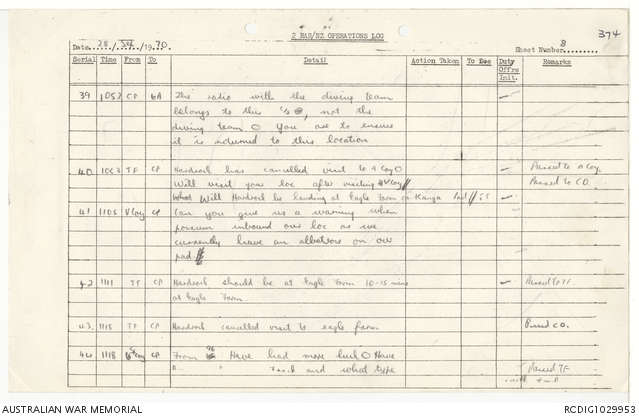 374
2 RAR/NZ OPERATIONS LOG
Date 28 / / 1970 Sheet Number 8
Serial Time From To Detail Action Taken To Dec Duty Offrs Init. Remarks
39 1052 CP 6A The radio with the diving team
belongs to this c/s, not the
diving team O You are to ensure
it is returned to this location
40 TF CP Hardrock has cancelled visit to A Coy O Passed to A Coy.
Will visit your loc after visiting V Coy // Passed to CO.
Will Hardrock be landing at Eagle Farm or Kanga
41 1105 V Coy CP Can you give us a warning when
possum inbound our loc as we
currently have an albatross on our
pad. //
42 1111 TF CP Hardrock should be at Eagle Farm 10-15 mins
at Eagle Farm.
43. 1115 TF CP Hardrock cancelled visit to eagle farm
44 1118 CP From Have had more luck O Have
and what type Passed TF
AUSTRALIAN WAR MEMORIAL RCDIG1029953